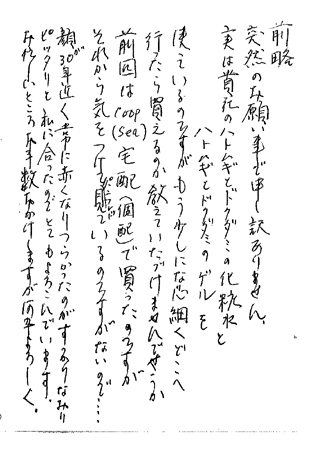 前略
突然のお願い事で申し訳ありません。
実は貴社のハトムギとドクダミの化粧水と
ハトムギとドクダミのゲルを
使っているのですがもう少しになり心細くどこへ
行ったら買えるのか教えていただけませんでせうか
前回はcoop(sea)宅配(個配)で買ったのですが
それから気をつけて見ているのですがないので…
顔が30年近く常に赤くなりつらかったのがすっかりなおり
ピッタリと私に合ったのでとてもよろこんでいます。
お忙しいところお手数おかけしますが何卒よろしく。